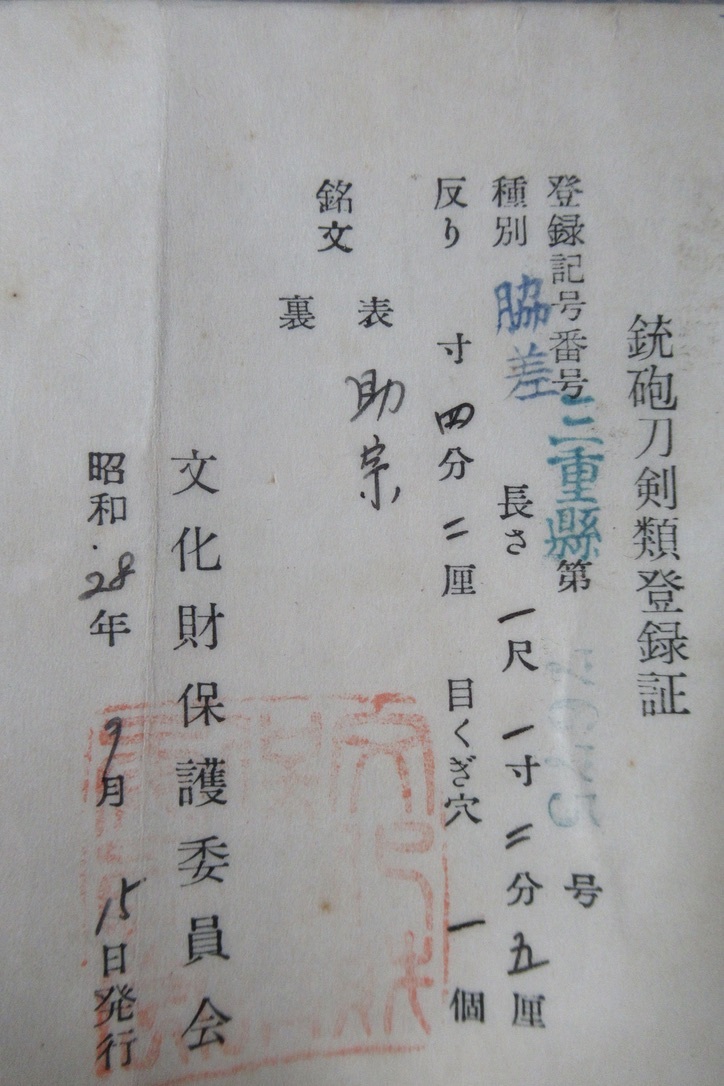 銃砲刀剣類登録証
登録記号番号 三重縣 第 号
種別 脇差 長さ 一尺 一寸 二分 五厘
反り 寸 四分 二厘 目くぎ穴 一個
銘文 表 助宗
裏
文化財保護委員会
昭和・28年 9月 15日発行